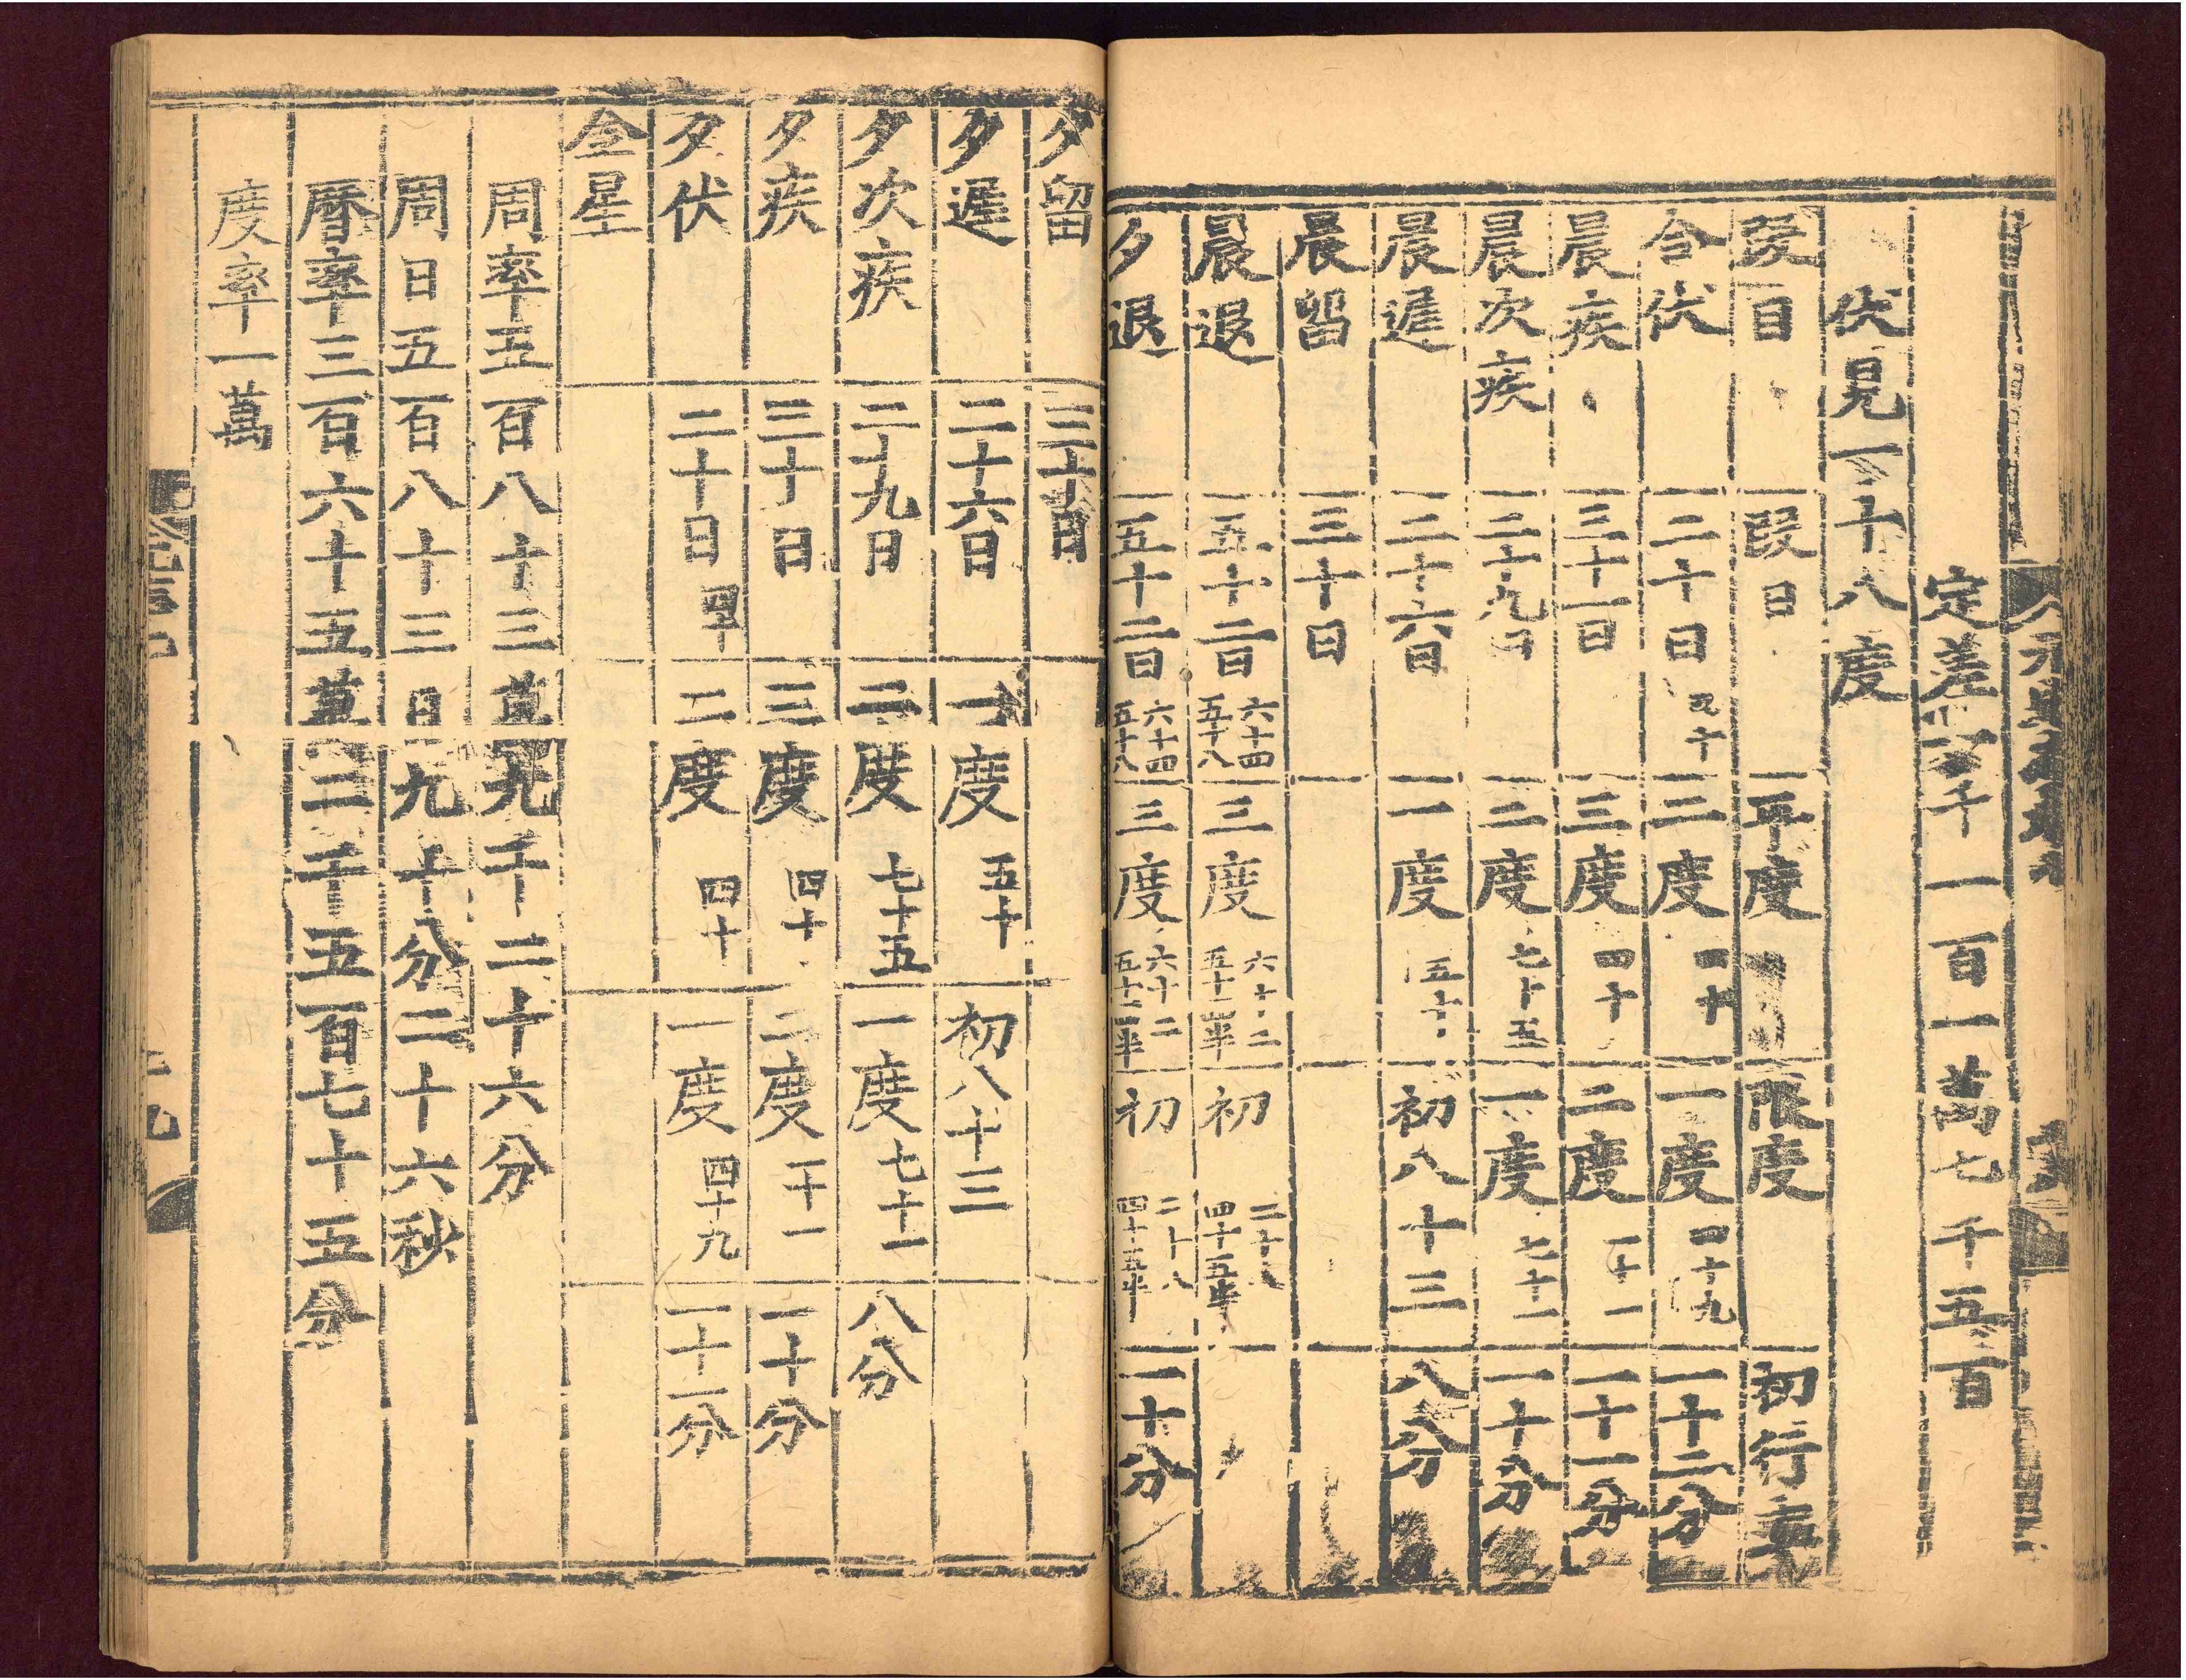 定差 千一百一萬七千五百
伏見一十八度
段目 段日 平度 限度 初行率
合伏 二十日 四十 二度 四十 一度 四十九 一十二分
晨疾 三十一日 三度 四十 二度 一十一 一十一分
晨次疾 二十九日 二度 七十五 一度 七十一 一十分
晨遲 二十六日 一度 五十 初八十三 八分
晨留 三十日
晨退 五十二日 六十四 五十八 三度 六十二 五十二半 初 二十八 四十五半
夕退 五十二日 六十四 五十八 三度 六十二 五十二半 初 二十八 四十五半 一十分
夕留 三十日
夕遲 二十六日 一度 五十 初八十三
夕次疾 二十九日 二度 七十五 一度 七十一 八分
夕疾 三十日 三度 四十 二度 一十一 一十分
夕伏 二十日 四十 二度 四十 一度 四十九 一十一分
金星
周率五百八十三萬九千二十六分
周日五百八十三日九十分二十六秒
曆率三百六十五萬二千五百七十五分
度率一萬